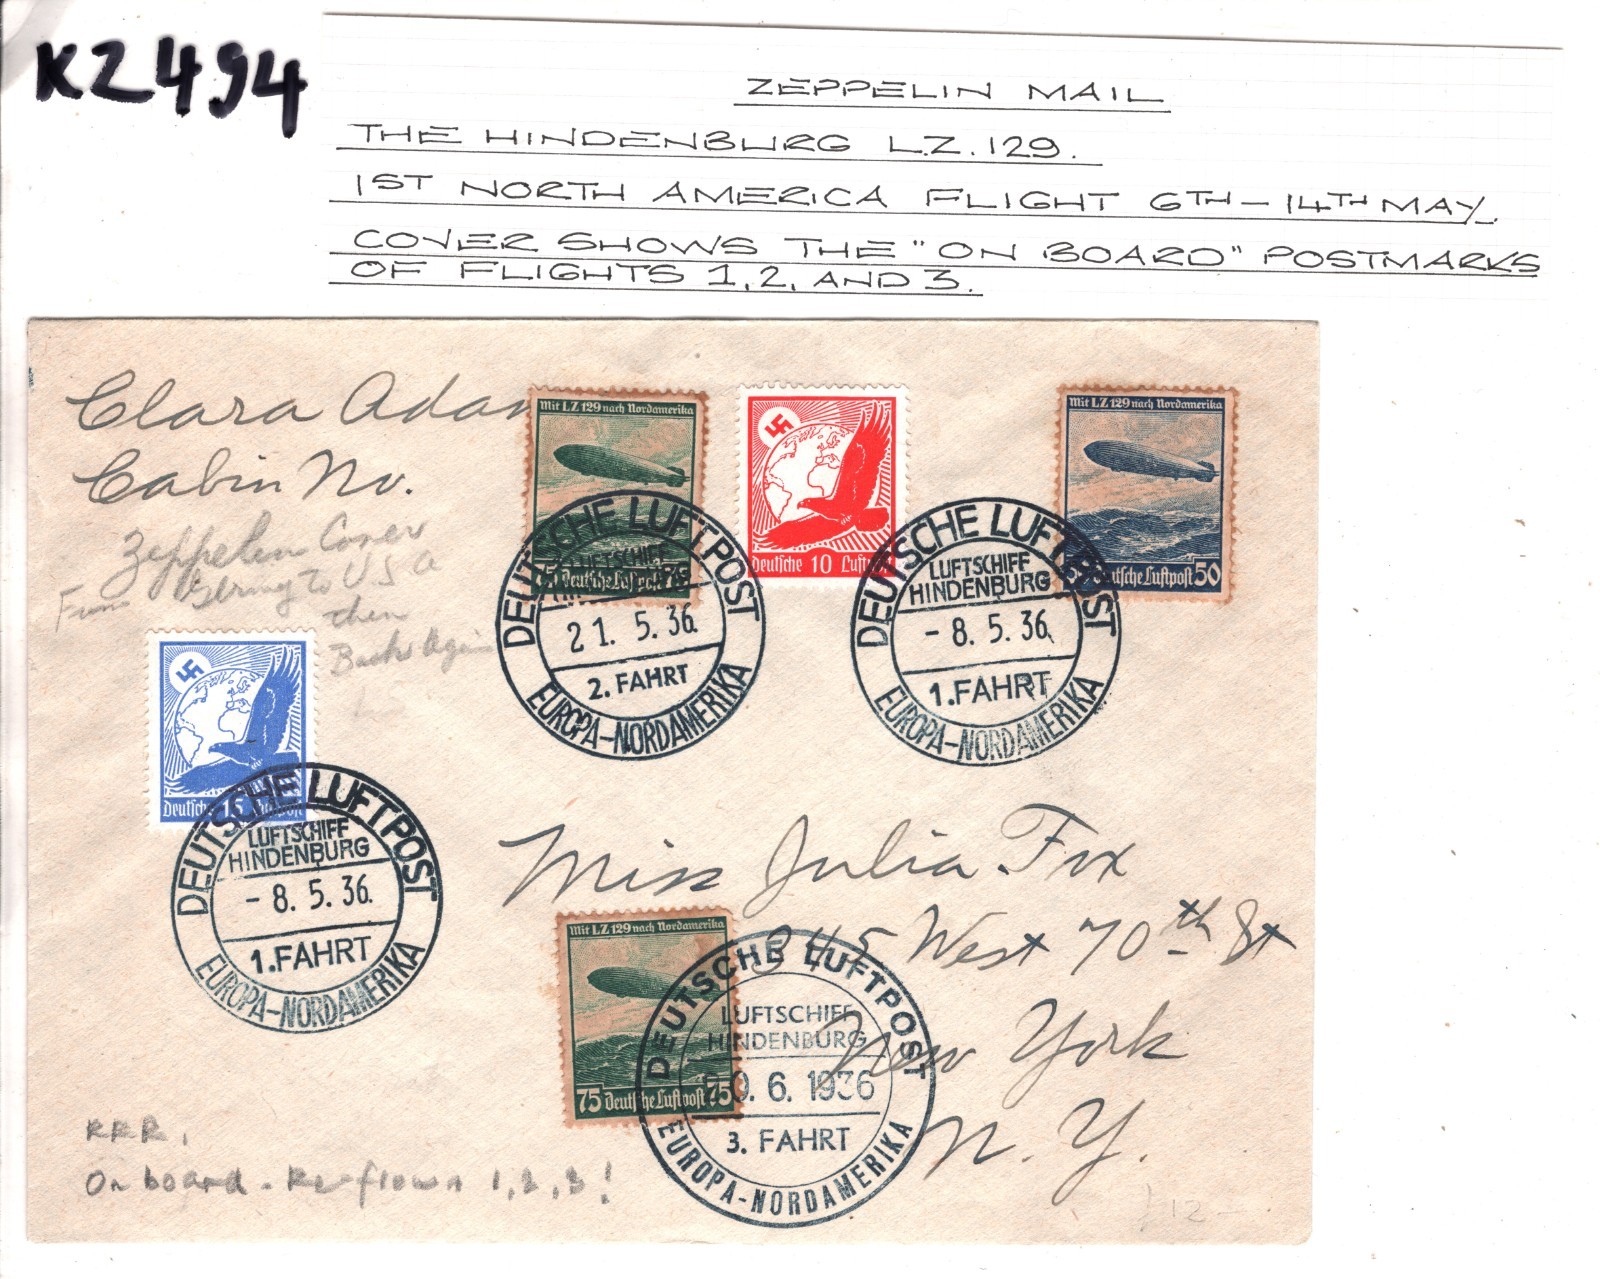 KZ494
ZEPPELIN MAIL
THE HINDENBURG L.Z.129.
1ST NORTH AMERICA FLIGHT 6TH - 14TH MAY.
COVER SHOWS THE "ON BOARD" POSTMARKS
OF FLIGHTS 1, 2, AND 3.
Clara Adam
Cabin No.
Zeppelin Cover
From
to USA
then
Back Again
Mit LZ 129 nach Nordamerika
Deutsche Luftpost 75
Deutsche 10 Luft
Mit LZ 129 nach Nordamerika
50 Deutsche Luftpost 50
DEUTSCHE LUFTPOST
LUFTSCHIFF
HINDENBURG
21. 5. 36.
2. FAHRT
EUROPA-NORDAMERIKA
DEUTSCHE LUFTPOST
LUFTSCHIFF
HINDENBURG
- 8. 5. 36.
1. FAHRT
EUROPA-NORDAMERIKA
Deutsche 15 Luftpost
DEUTSCHE LUFTPOST
LUFTSCHIFF
HINDENBURG
- 8. 5. 36.
1. FAHRT
EUROPA-NORDAMERIKA
Miss Julia Fox
345 West 70th St
New York
N. Y.
Mit LZ 129 nach Nordamerika
75 Deutsche Luftpost 75
DEUTSCHE LUFTPOST
LUFTSCHIFF
HINDENBURG
0. 6. 1936
3. FAHRT
EUROPA-NORDAMERIKA
RRR.
On board - Re-flown 1, 2, 3!
12 -